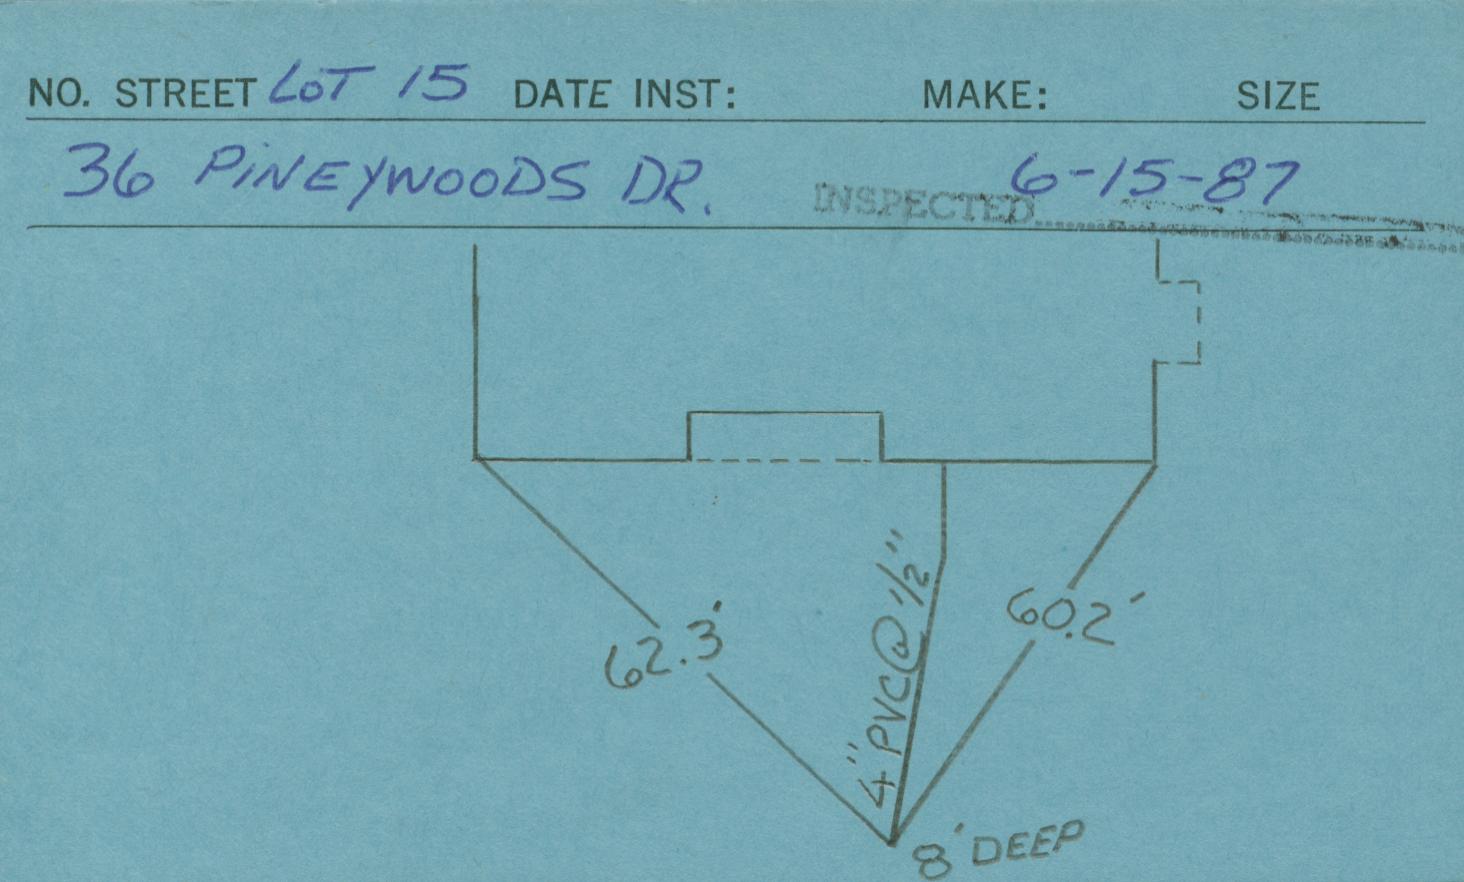 NO. STREET LOT 15 DATE INST: MAKE: SIZE
36 PINEYWOODS DR. INSPECTED 6-15-87
62.3'
4" PVC@1/2"
60.2'
8' DEEP